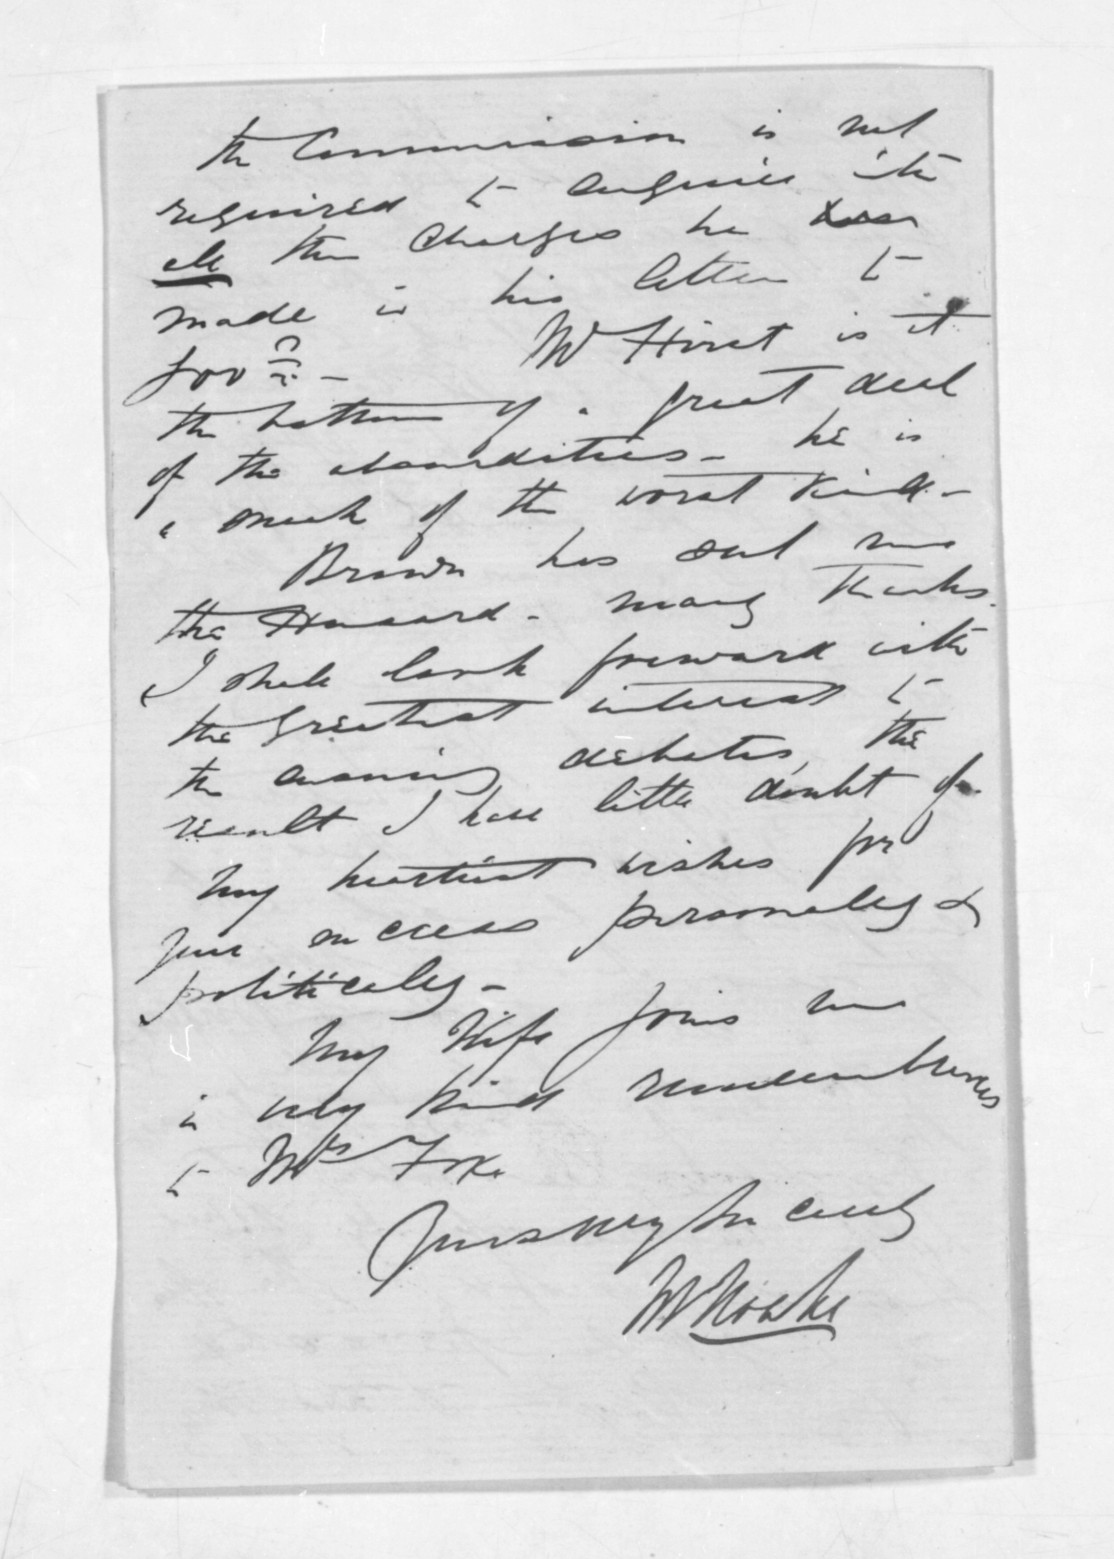 the Commission is not
required to enquire into
all the Charges he has
made in his letter to
Govt. - Mr Hirst is at
the bottom of a great deal
of the absurdities - he is
a sneak of the worst kind -
Brown has sent me
the Hansard - many thanks.
I shall look forward with
the greatest interest to
the ensuing debates, the
result I have little doubt of.
My heartiest wishes for
your success personally &
politically -
My Wife joins me
in very kind remembrances
to Mrs Fox.
Yours very sincerely